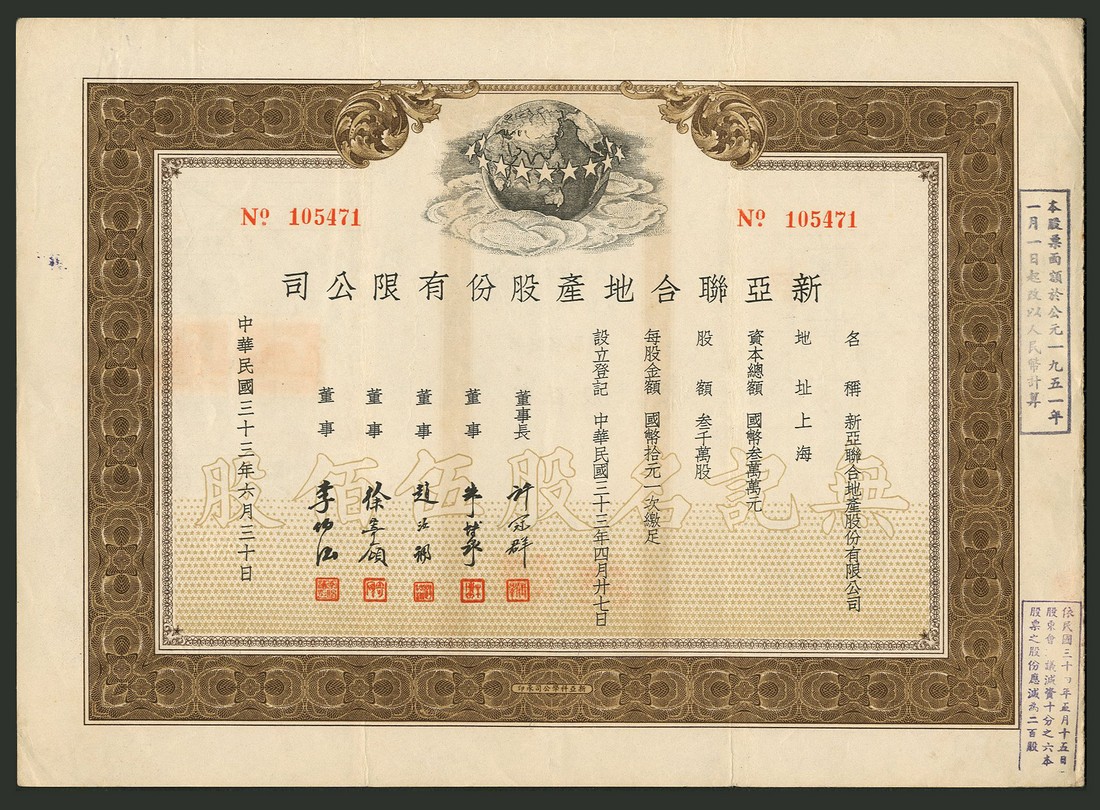 No 105471
No 105471
新亞聯合地產股份有限公司
名稱 新亞聯合地產股份有限公司
地址 上海
資本總額 國幣叁萬萬元
股額 叁千萬股
每股金額 國幣拾元一次繳足
設立登記 中華民國三十三年四月廿七日
董事長 許冠群
董事
董事 趙
董事 徐
董事 李
中華民國三十三年六月三十日
無記名股伍佰股
新亞科學公司承印
本股票面額於公元一九五一年
一月一日起改以人民幣計算
依民國三十 年五月十五日
股東會 議減資十分之六本
股票之股份應減為二百股